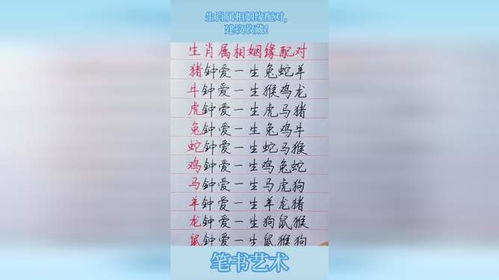 生肖属相姻缘配对，
建议收藏！
生肖属相姻缘配对
猪钟爱一生兔蛇羊
牛钟爱一生猴鸡龙
虎钟爱一生虎马猪
兔钟爱一生兔鸡牛
蛇钟爱一生蛇马猴
鸡钟爱一生鸡兔蛇
马钟爱一生马虎狗
羊钟爱一生羊龙猪
龙钟爱一生狗鼠猴
鼠钟爱一生鼠猴狗
笔书艺术